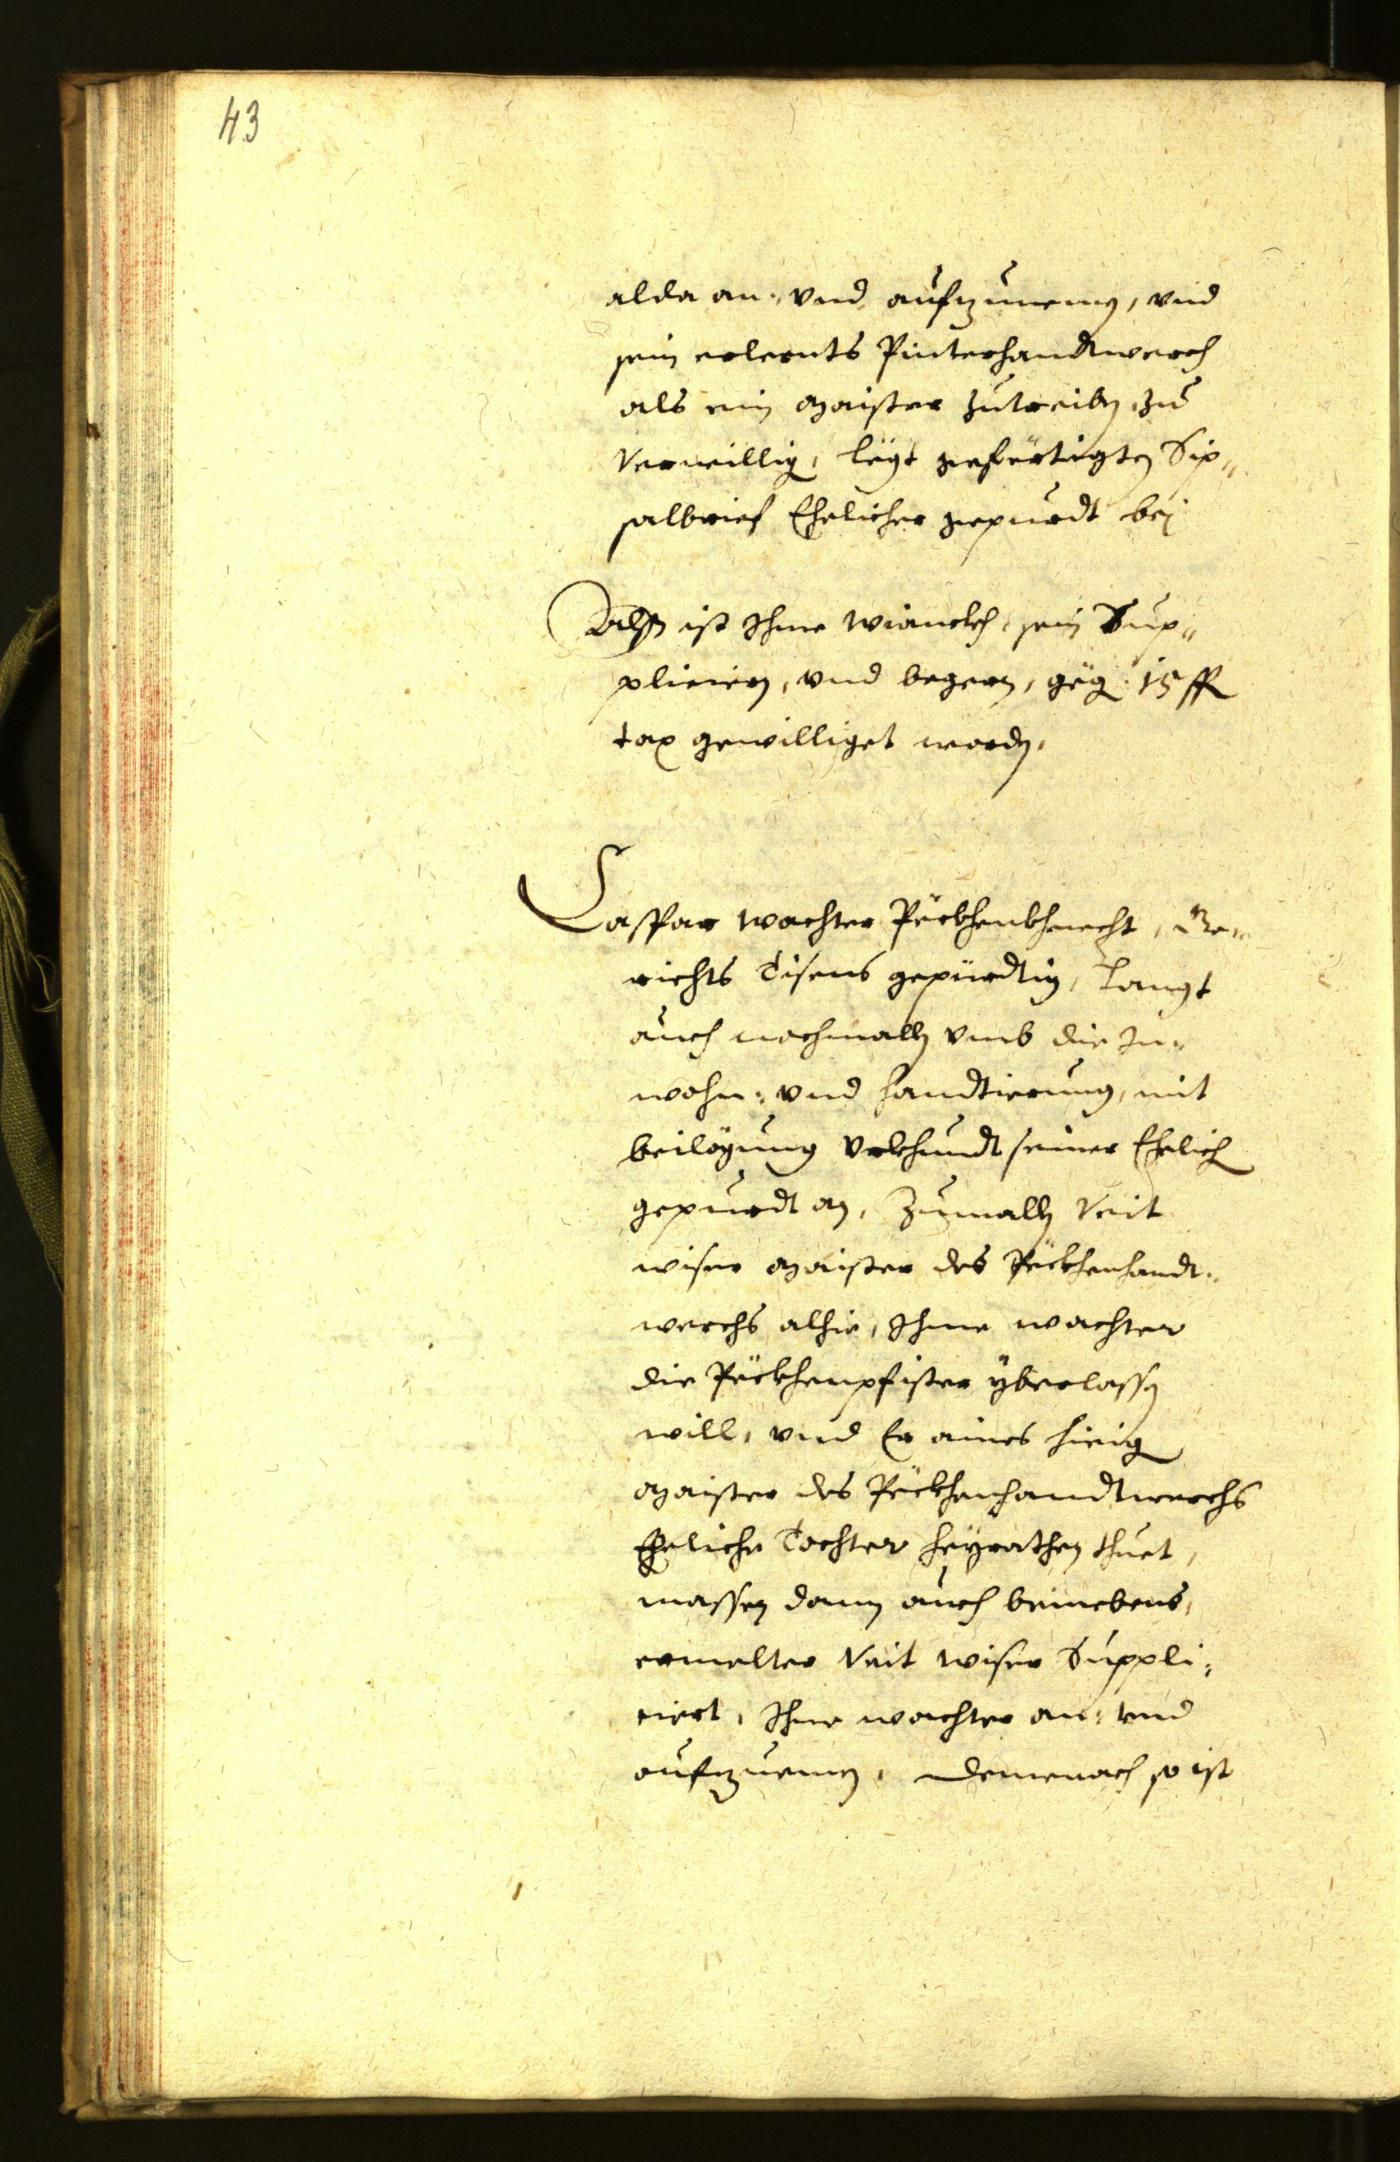 43
alda an: vnd aufzunemen, vnd
sein erlernts Pinterhandtwerch
als ein maister zutreiben, zu
verwilligen, legt gefertigten Sip„
salbrief Ehelicher gepurdt bej
Also ist Ihme Wianckh, sein Sup„
plicieren, vnd begern, gegen 15 fl
tax gewilliget worden,
Casspar Wachter Pëckhenkhnecht, Ge„
richts Tisens gepürdtig, langt
auch nochmalln vmb die In„
wohn: vnd handtierung, mit
beilögung Vrkhundt seiner Ehelichen
gepurdt an, Zumalln Veit
Wiser maister des Pëckhenhandt„
werchs alhie, Ihme Wachter
die Pëckhenpfister yberlassen
will, vnd Er aines hieigen
maister des Pëckhenhandtwerchs
Eheliche Tochter heyrathen thuet,
massen dann auch beinebens,
ermelter Veit Wiser Suppli„
ciert, Ihne Wachter an: vnd
aufzunemen, demenach so ist